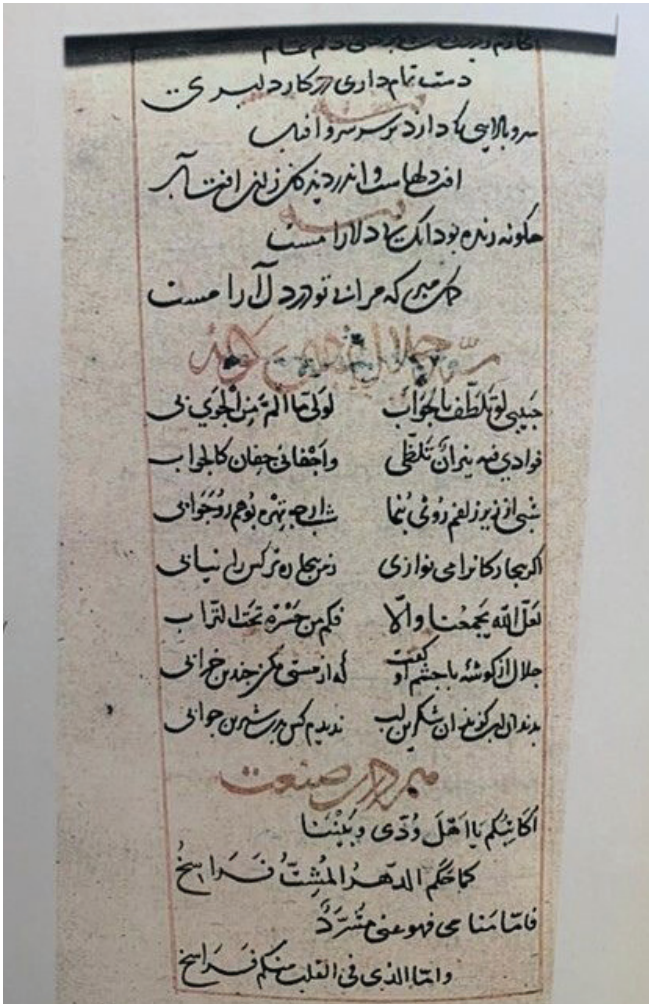 دست تمام داری در کار دلبری
سرو بالایی که دارد بر سر سرو افتاب
افت دلهاست و اندر دیدکان زان افت آب
چکونه زنده بود انک بی دلارامست
کمان مبر که مرا بی تو در دل آرامست
سید جلال عضد کوید
حبیبی لو تلطف بالجواب لولی ما الم من الجوی بی
فوادی فیه نیران تلظی واجفانی جفان کالجواب
شبی از زیر زلفم روی بنما شب ارچه تیره بهم روجوابی
اکر بیچارکانرا می نوازی ز من بیچاره تر کس را نیابی
لعل الله یجمعنا والا فکم من حسرة تحت التراب
جلال از کوشه با چشم او کفت که از مستی مکن چندین خرابی
بدندان لب کزید ان شکرین لب ندیدم کس بدین شیرین جوابی
هم در این صنعت
اکاتبکم یا اهل ودی و بیننا
کما حکم الدهر المشت فراسخ
فاما منامی فهو عنی مشرد
واما الذی فی القلب منکم فراسخ